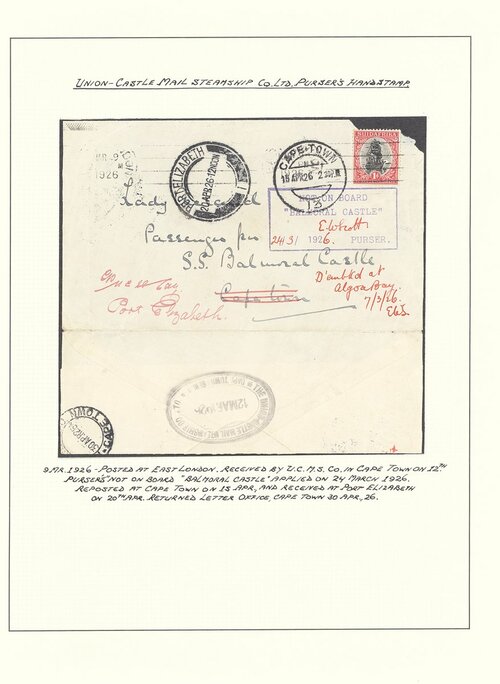 UNION-CASTLE MAIL STEAMSHIP CO. LTD. PURSER'S HANDSTAMP.
1926
PORT ELIZABETH
20 APR 26 · 12 NOON
CAPE·TOWN
15 APR 26 2 30 PM
13
SUIDAFRIKA
1D
NOT ON BOARD
"BALMORAL CASTLE"
24/3/ 1926. PURSER.
Lady
Passenger per
S.S. Balmoral Castle
Cape Town
Port Elizabeth.
D'ambkd at
Algoa Bay.
7/3/26.
12 MAR
CAPE TOWN
30 APR 26
9 MR. 1926 - POSTED AT EAST LONDON. RECEIVED BY U.C.M.S. CO. IN CAPE TOWN ON 12TH
PURSER'S "NOT ON BOARD "BALMORAL CASTLE" APPLIED ON 24 MARCH 1926.
REPOSTED AT CAPE TOWN ON 15 APR, AND RECEIVED AT PORT ELIZABETH
ON 20TH APR. RETURNED LETTER OFFICE, CAPE TOWN 30 APR, 26.